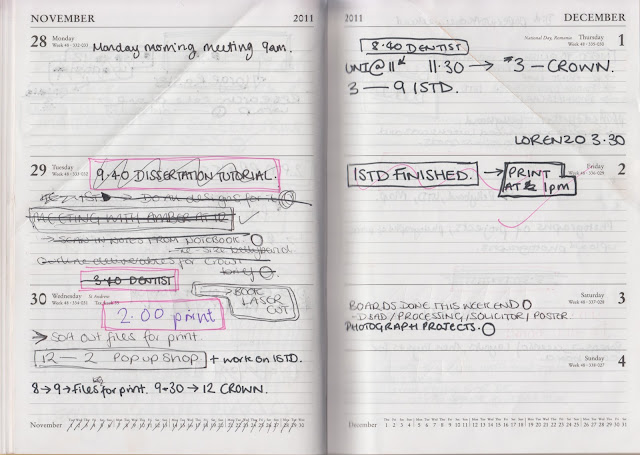 NOVEMBER 2011
28 Monday
Week 48 · 332-033
Monday morning meeting 9am.
29 Tuesday
Week 48 · 333-032
9.40 DISSERTATION TUTORIAL.
ISTD → Do an designs for it
MEETING WITH AMBER AT 12
→ SCAN IN NOTES FROM NOTEBOOK.
Outline deliverables for Crown
brief
3.40 DENTIST
30 Wednesday St Andrew
Week 48
→ BOOK
LASER
CUT
2.00 print
→ Sort out files for print
12 — 2 Pop up Shop + work on ISTD.
8 → 9 → files for print. 9.30 → 12 CROWN.
November
2011 DECEMBER
National Day, Romania Thursday
Week 48 · 335-030 1
8.40 DENTIST
UNI @ 11 11.30 → #3 — CROWN.
3 — 9 ISTD.
LORENZO 3.30
Friday
Week 48 · 336-029 2
ISTD FINISHED. → PRINT
AT 1pm
Saturday
Week 48 · 337-028 3
BOARDS DONE THIS WEEKEND
- D&AD / PROCESSING / SOLICITOR / POSTER
PHOTOGRAPH PROJECTS.
Sunday
Week 48 · 338-027 4
December 1 2 3 4 5 6 7 8 9 10 11 12 13 14 15 16 17 18 19 20 21 22 23 24 25 26 27 28 29 30 31